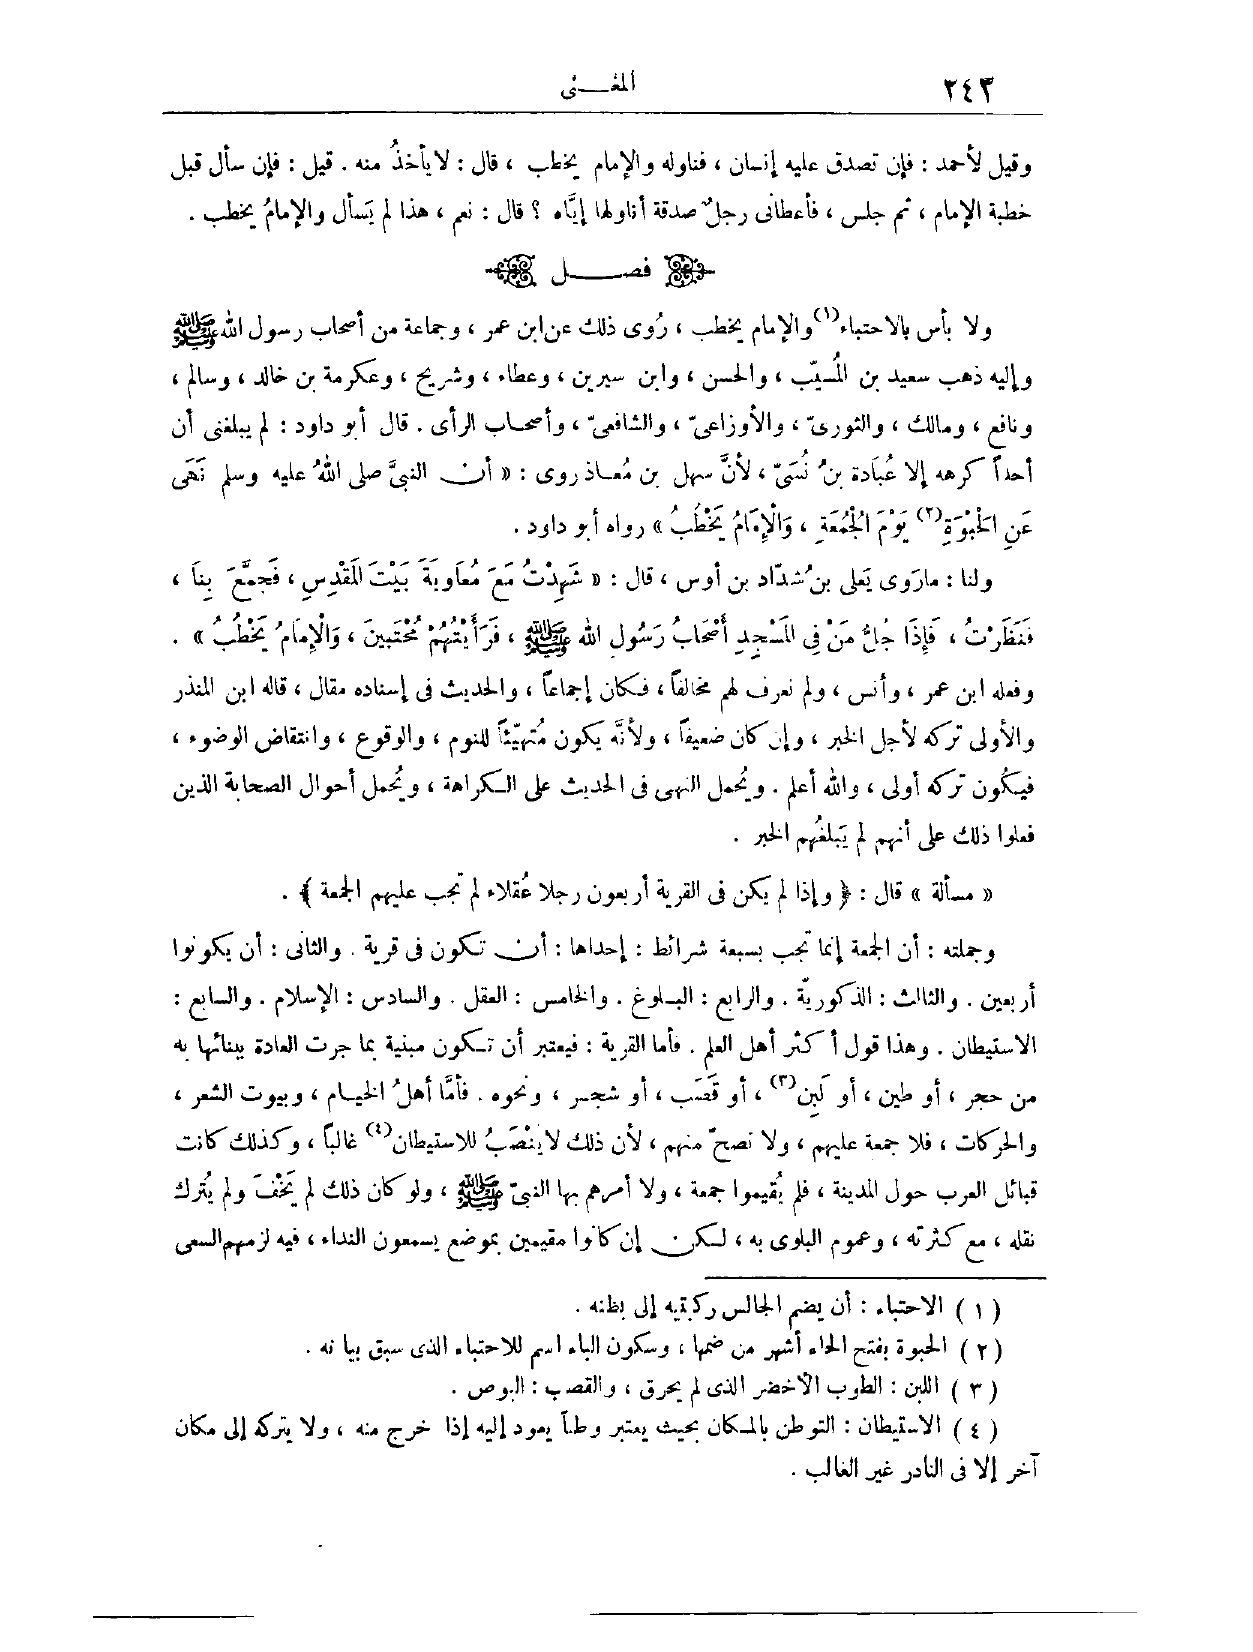 ٢٤٣
المغـــنى
وقيل لأحمد : فإن تصدق عليه إنسان ، فناوله والإمام يخطب ، قال : لا يأخذُ منه . قيل : فإن سأل قبل
خطبة الإمام ، ثم جلس ، فأعطانى رجلٌ صدقة أناولها إيَّاه ؟ قال : نعم ، هذا لم يَسأل والإمامُ يخطب .
فصـــــل
ولا بأس بالاحتباء(١) والإمام يخطب ، رُوى ذلك عن ابن عمر ، وجماعة من أصحاب رسول الله ﷺ
وإليه ذهب سعيد بن المُسيّب ، والحسن ، وابن سيرين ، وعطاء ، وشريح ، وعكرمة بن خالد ، وسالم ،
ونافع ، ومالك ، والثورىّ ، والأوزاعىّ ، والشافعىّ ، وأصحاب الرأى . قال أبو داود : لم يبلغنى أن
أحداً كرهه إلا عُبَادة بنُ نُسَىّ ، لأنَّ سهل بن مُعاذ روى : « أن النبىَّ صلى اللهُ عليه وسلم نَهَى
عَنِ الحَبْوَةِ(٢) يَوْمَ الجُمُعَةِ ، وَالْإِمَامُ يَخْطُبُ » رواه أبو داود .
ولنا : مارَوى يَعلى بن شدّاد بن أوس ، قال : « شَهِدْتُ مَعَ مُعَاوِيَةَ بَيْتَ المَقْدِسِ ، فَجَمَّعَ بِنَا ،
فَنَظَرْتُ ، فَإِذَا جُلُّ مَنْ فِى المَسْجِدِ أَصْحَابُ رَسُولِ الله ﷺ ، فَرَأَيْتُهُمْ مُحْتَبِينَ ، وَالْإِمَامُ يَخْطُبُ » .
وفعله ابن عمر ، وأنس ، ولم نعرف لهم مخالفاً ، فكان إجماعاً ، والحديث فى إسناده مقال ، قاله ابن المنذر
والأولى تركه لأجل الخبر ، وإن كان ضعيفاً ، ولأنَّه يكون مُتهيّئاً للنوم ، والوقوع ، وانتقاض الوضوء ،
فيكون تركه أولى ، والله أعلم . ويُحمل النهى فى الحديث على الكراهة ، ويُحمل أحوال الصحابة الذين
فعلوا ذلك على أنهم لم يَبلغُهم الخبر .
« مسألة » قال : ﴿ وإذا لم يكن فى القرية أربعون رجلا عُقلاء لم تجب عليهم الجمعة ﴾ .
وجملته : أن الجمعة إنما تجب بسبعة شرائط : إحداها : أن تكون فى قرية . والثانى : أن يكونوا
أربعين . والثالث : الذكوريّة . والرابع : البلوغ . والخامس : العقل . والسادس : الإسلام . والسابع :
الاستيطان . وهذا قول أكثر أهل العلم . فأما القرية : فيعتبر أن تكون مبنية بما جرت العادة ببنائها به
من حجر ، أو طين ، أو لَبِن(٣) ، أو قَصَب ، أو شجر ، ونحوه . فأمَّا أهلُ الخيام ، وبيوت الشعر ،
والحركات ، فلا جمعة عليهم ، ولا تصحّ منهم ، لأن ذلك لا يُنْصَبُ للاستيطان(٤) غالباً ، وكذلك كانت
قبائل العرب حول المدينة ، فلم يُقيموا جمعة ، ولا أمرهم بها النبىّ ﷺ ، ولو كان ذلك لم يَخْفَ ولم يُترك
نقله ، مع كثرته ، وعموم البلوى به ، لكن إن كانوا مقيمين بموضع يسمعون النداء ، فيه لزمهم السعى
( ١ ) الاحتباء : أن يضم الجالس ركبتيه إلى بطنه .
( ٢ ) الحبوة بفتح الحاء أشهر من ضمها ، وسكون الباء اسم للاحتباء الذى سبق بيا نه .
( ٣ ) اللبن : الطوب الأخضر الذى لم يحرق ، والقصب : البوص .
( ٤ ) الاستيطان : التوطن بالمكان بحيث يعتبر وطناً يعود إليه إذا خرج منه ، ولا يتركه إلى مكان
آخر إلا فى النادر غير الغالب .